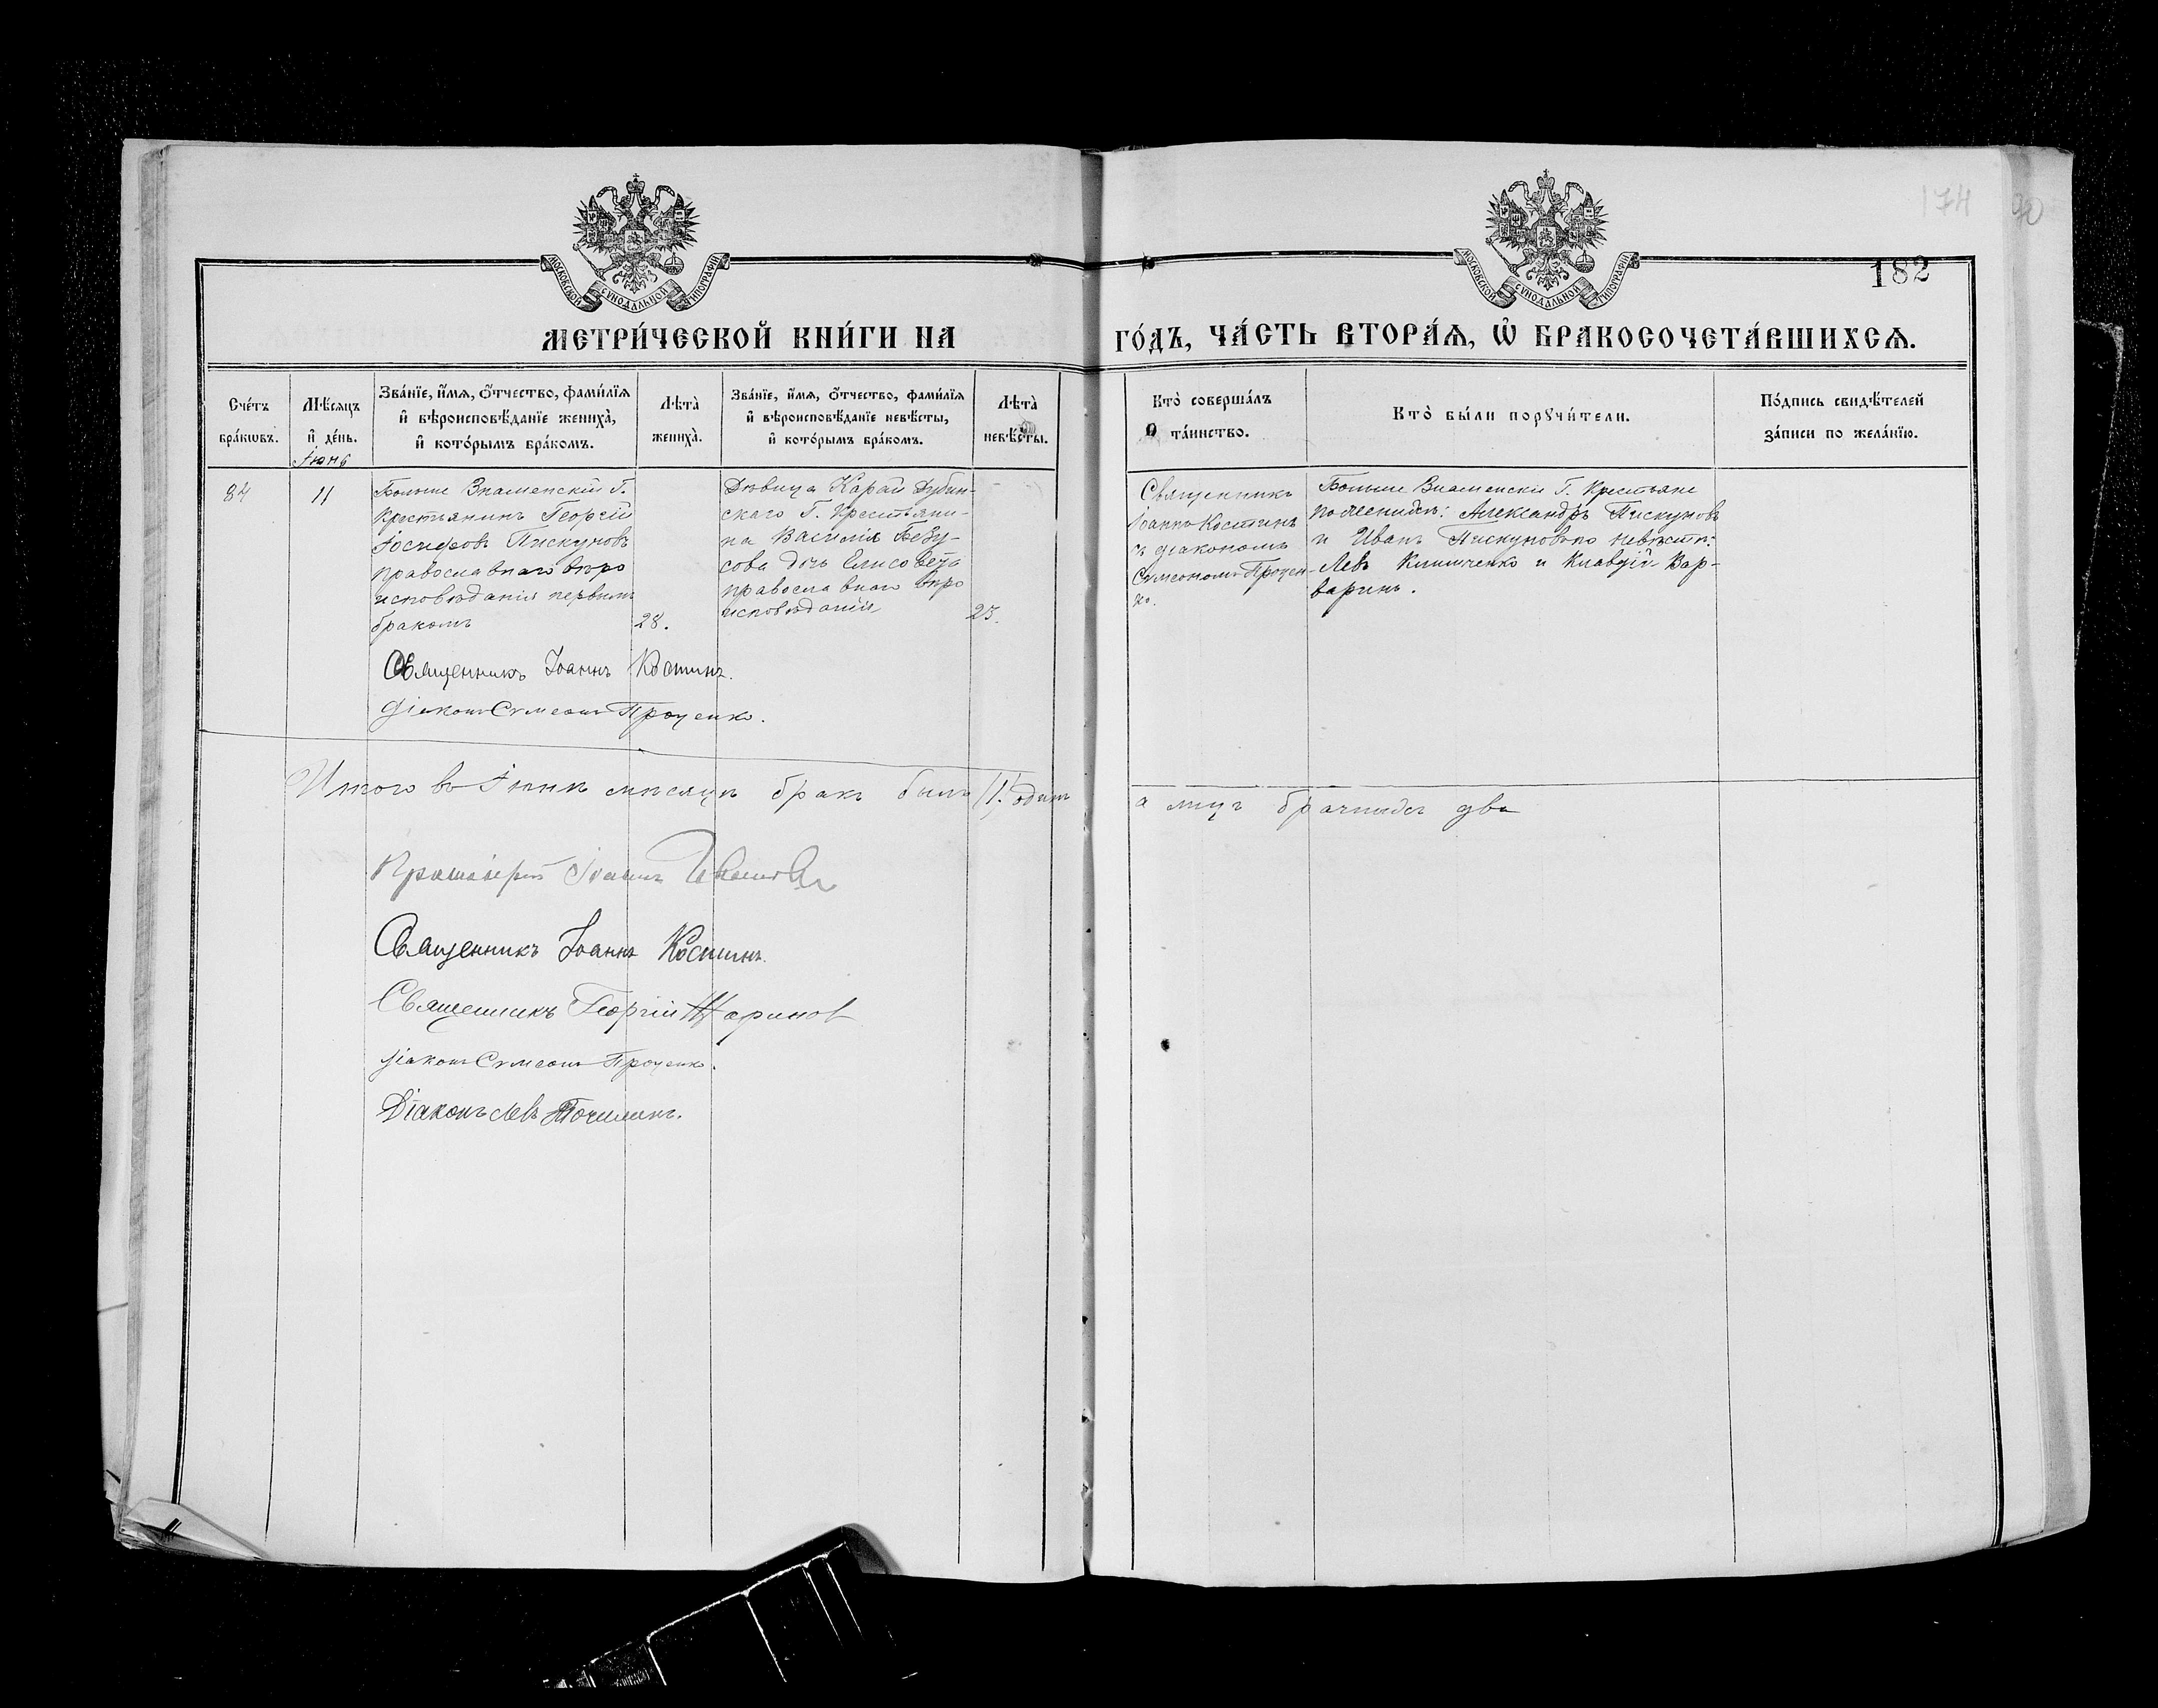 174
МОСКОВСКОЙ СѴНОДАЛЬНОЙ ТИПОГРАФІИ
МОСКОВСКОЙ СѴНОДАЛЬНОЙ ТИПОГРАФІИ
182
МЕТРИ́ЧЕСКОЙ КНИ́ГИ НА
ГО́ДЪ, ЧА́СТЬ ВТОРА́Я, Ѡ БРАКОСОЧЕТА́ВШИХСЯ.
Сче́тъ
бра́кѡвъ.
Мѣ́сяцъ
и де́нь.
Зва́нїе, и́мя, ѻ́тчество, фами́лїя
и вѣроисповѣ́данїе жениха̀,
и кото́рымъ бра́комъ.
Лѣта̀
жениха̀.
Зва́нїе, и́мя, ѻ́тчество, фами́лїя
и вѣроисповѣ́данїе невѣ́сты,
и кото́рымъ бра́комъ.
Лѣта̀
невѣ́сты.
Кто̀ соверша́лъ
та́инство.
Кто̀ бы́ли порꙋчи́тели.
По́дпись свидѣ́телей
за́писи по жела́нїю.
Іюнь
84
11
Больше Знаменскій Г.
Крестьянинъ Георгій
Іосифовъ Пискуновъ
православнаго вѣро
исповѣданія первымъ
бракомъ
28.
Дѣвица Карай Дубин-
скаго Г. Крестьяни-
на Василія Безу-
сова дочь Елисовета
православнаго вѣро
исповѣданія
23.
Священникъ
Іоаннъ Костинъ
съ діакономъ
Сѵмеономъ Процен-
ко.
Больше Знаменскіе Г. Крестьяне
по женихѣ: Александръ Пискуновъ
и Иванъ Пискуновъ по невѣстѣ:
Левъ Клишченко и Клавдій Вар-
варинъ.
Священникъ Іоаннъ Костинъ.
Діаконъ Сѵмеонъ Проценко.
Итого въ Іюнѣ мѣсяцѣ бракъ былъ /1./ одинъ
а лицъ брачныхъ два
Протоіерей Іоаннъ
Священникъ Іоаннъ Костинъ.
Священникъ Георгій Жариновъ
Діаконъ Сѵмеонъ Проценко.
Діаконъ Левъ Точилинъ.